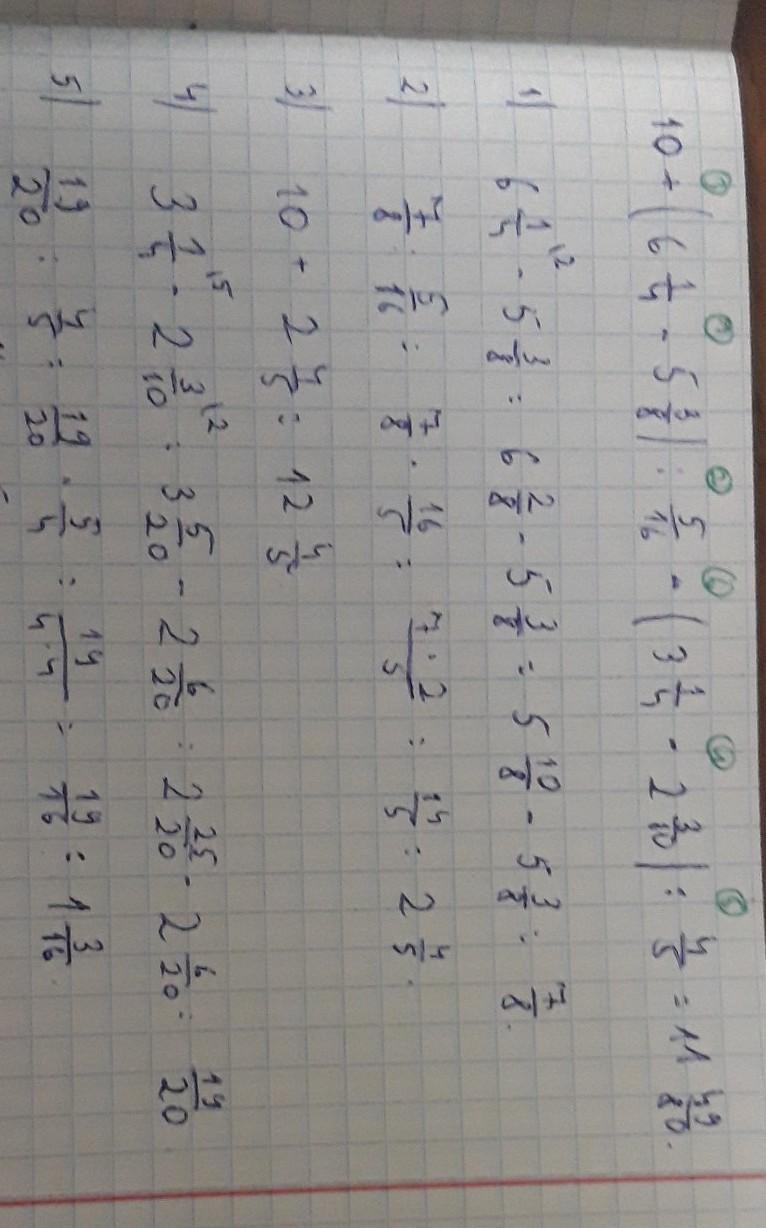 10 + (6 1/4 - 5 3/8) : 5/16 - (3 1/4 - 2 3/10) : 4/5 = 11 49/80.
1) 6 1/4 - 5 3/8 = 6 2/8 - 5 3/8 = 5 10/8 - 5 3/8 = 7/8.
2) 7/8 : 5/16 = 7/8 · 16/5 = 7·2/5 = 14/5 = 2 4/5.
3) 10 + 2 4/5 = 12 4/5
4) 3 1/4 - 2 3/10 = 3 5/20 - 2 6/20 = 2 25/20 - 2 6/20 = 19/20
5) 19/20 : 4/5 = 19/20 · 5/4 = 19/4·4 = 19/16 = 1 3/16.